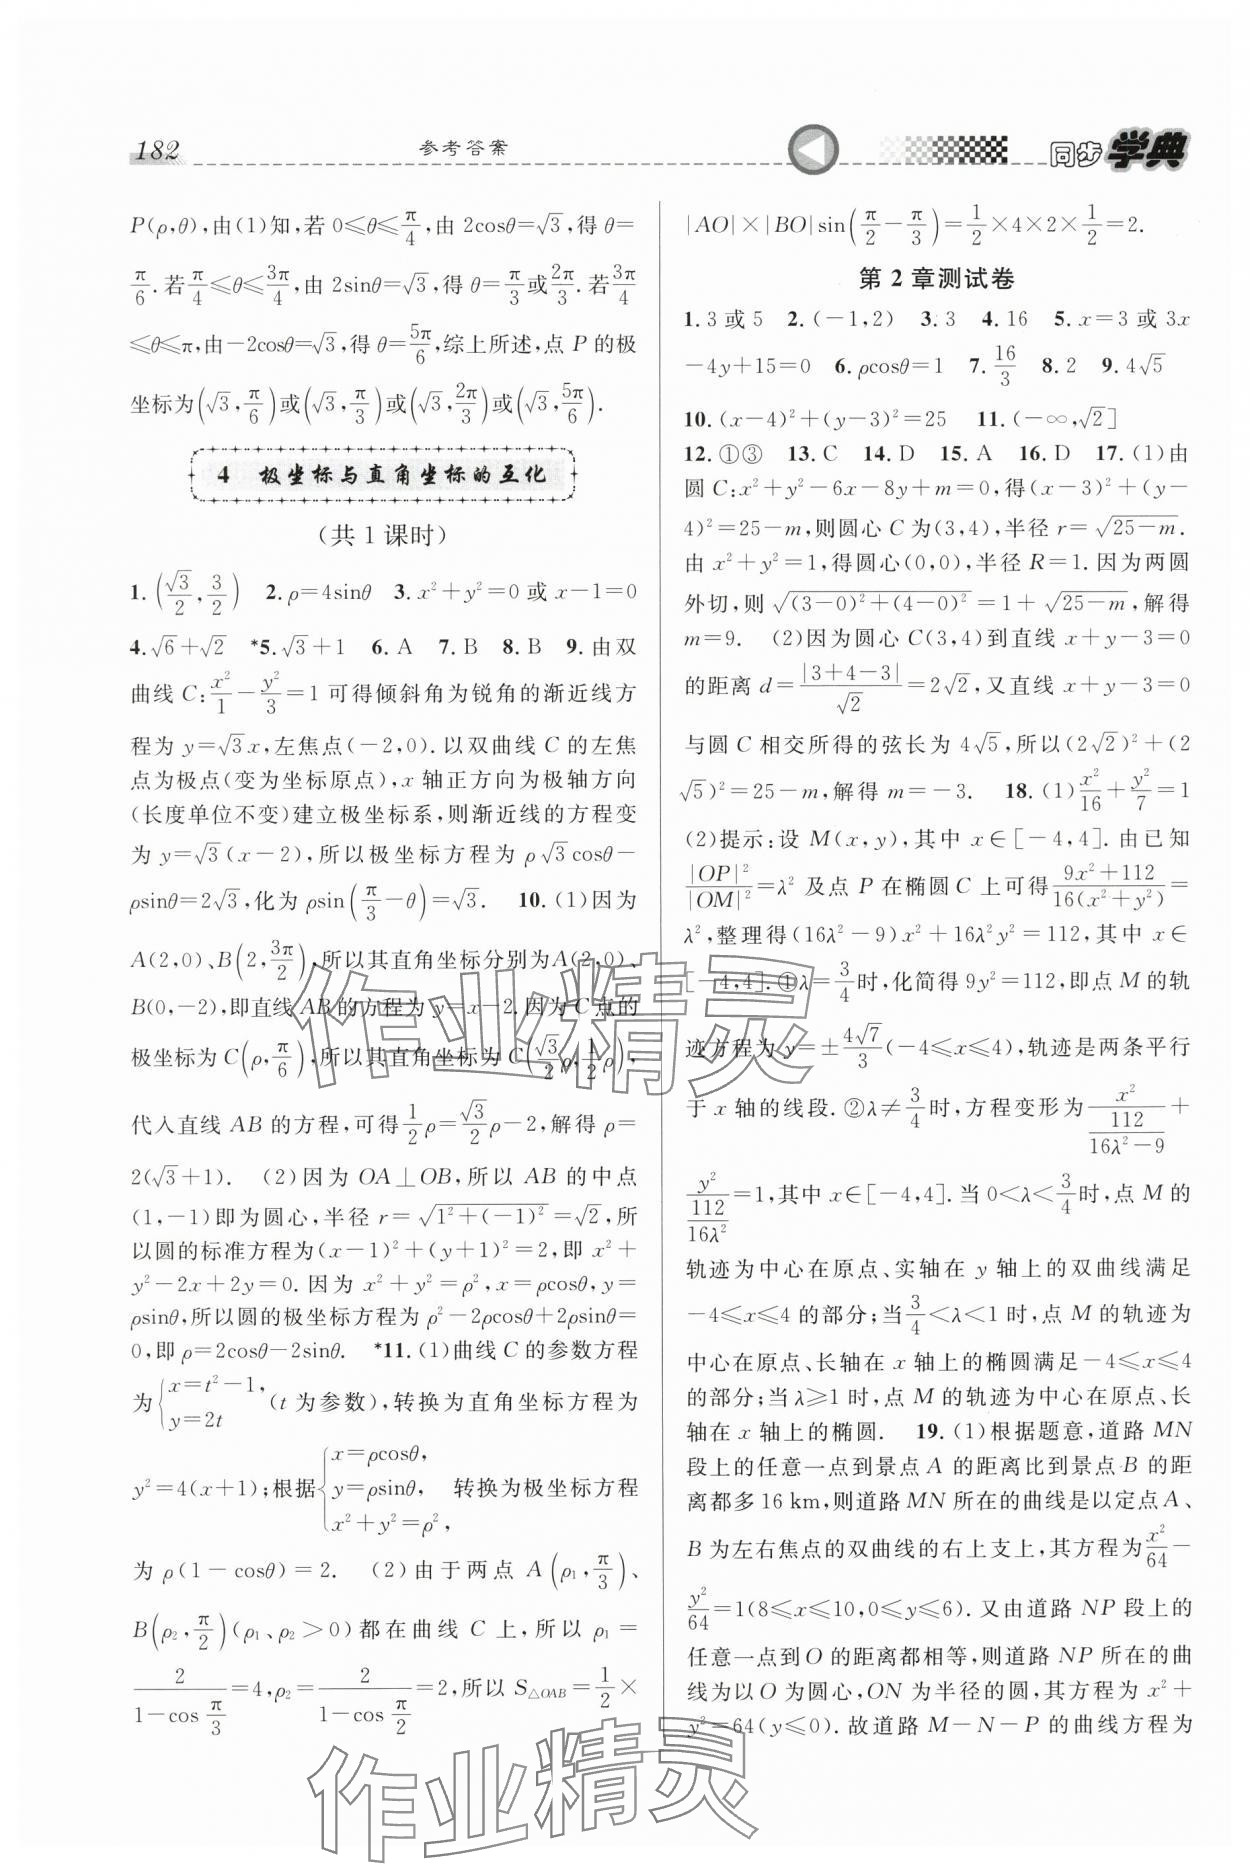 182 参考答案 同步学典
P(ρ,θ),由(1)知,若 0⩽θ⩽π/4,由 2cosθ=√3,得 θ=
π/6.若π/4⩽θ⩽3π/4,由 2sinθ=√3,得 θ=π/3或2π/3.若3π/4
⩽θ⩽π,由-2cosθ=√3,得 θ=5π/6,综上所述,点 P 的极
坐标为(√3,π/6)或(√3,π/3)或(√3,2π/3)或(√3,5π/6).
4 极坐标与直角坐标的互化
(共 1 课时)
1.(√3/2,3/2) 2.ρ=4sinθ 3.x²+y²=0 或 x-1=0
4.√6+√2 *5.√3+1 6.A 7.B 8.B 9.由双
曲线 C:x²/1-y²/3=1 可得倾斜角为锐角的渐近线方
程为 y=√3x,左焦点(-2,0).以双曲线 C 的左焦
点为极点(变为坐标原点),x 轴正方向为极轴方向
(长度单位不变)建立极坐标系,则渐近线的方程变
为 y=√3(x-2),所以极坐标方程为 ρ√3cosθ-
ρsinθ=2√3,化为 ρsin(π/3-θ)=√3. 10.(1)因为
A(2,0)、B(2,3π/2),所以其直角坐标分别为A(2,0)、
B(0,-2),即直线 AB 的方程为 y=x-2.因为 C 点的
极坐标为 C(ρ,π/6),所以其直角坐标为 C(√3/2ρ,1/2ρ),
代入直线 AB 的方程,可得1/2ρ=√3/2ρ-2,解得 ρ=
2(√3+1). (2)因为 OA⊥OB,所以 AB 的中点
(1,-1)即为圆心,半径 r=√(1²+(-1)²)=√2,所
以圆的标准方程为(x-1)²+(y+1)²=2,即 x²+
y²-2x+2y=0.因为 x²+y²=ρ²,x=ρcosθ,y=
ρsinθ,所以圆的极坐标方程为 ρ²-2ρcosθ+2ρsinθ=
0,即 ρ=2cosθ-2sinθ. *11.(1)曲线 C 的参数方程
为{x=t²-1, y=2t (t 为参数),转换为直角坐标方程为
y²=4(x+1);根据{x=ρcosθ, y=ρsinθ, x²+y²=ρ², 转换为极坐标方程
为 ρ(1-cosθ)=2. (2)由于两点 A(ρ₁,π/3)、
B(ρ₂,π/2)(ρ₁、ρ₂>0)都在曲线 C 上,所以 ρ₁=
2/(1-cos π/3)=4,ρ₂=2/(1-cos π/2)=2,所以 S△OAB=1/2×
|AO|×|BO|sin(π/2-π/3)=1/2×4×2×1/2=2.
第 2 章测试卷
1.3 或 5 2.(-1,2) 3.3 4.16 5.x=3 或 3x
-4y+15=0 6.ρcosθ=1 7.16/3 8.2 9.4√5
10.(x-4)²+(y-3)²=25 11.(-∞,√2]
12.①③ 13.C 14.D 15.A 16.D 17.(1)由
圆 C:x²+y²-6x-8y+m=0,得(x-3)²+(y-
4)²=25-m,则圆心 C 为(3,4),半径 r=√(25-m).
由 x²+y²=1,得圆心(0,0),半径 R=1.因为两圆
外切,则 √((3-0)²+(4-0)²)=1+√(25-m),解得
m=9. (2)因为圆心 C(3,4)到直线 x+y-3=0
的距离 d=|3+4-3|/√2=2√2,又直线 x+y-3=0
与圆 C 相交所得的弦长为 4√5,所以(2√2)²+(2
√5)²=25-m,解得 m=-3. 18.(1)x²/16+y²/7=1
(2)提示:设 M(x,y),其中 x∈[-4,4].由已知
|OP|²/|OM|²=λ² 及点 P 在椭圆 C 上可得(9x²+112)/(16(x²+y²))=
λ²,整理得(16λ²-9)x²+16λ²y²=112,其中 x∈
[-4,4].①λ=3/4时,化简得 9y²=112,即点 M 的轨
迹方程为 y=±4√7/3(-4⩽x⩽4),轨迹是两条平行
于 x 轴的线段.②λ≠3/4时,方程变形为x²/(112/(16λ²-9))+
y²/(112/(16λ²))=1,其中 x∈[-4,4].当 0<λ<3/4时,点 M 的
轨迹为中心在原点、实轴在 y 轴上的双曲线满足
-4⩽x⩽4 的部分;当3/4<λ<1 时,点 M 的轨迹为
中心在原点、长轴在 x 轴上的椭圆满足-4⩽x⩽4
的部分;当 λ⩾1 时,点 M 的轨迹为中心在原点、长
轴在 x 轴上的椭圆. 19.(1)根据题意,道路 MN
段上的任意一点到景点 A 的距离比到景点 B 的距
离都多 16 km,则道路 MN 所在的曲线是以定点 A、
B 为左右焦点的双曲线的右上支上,其方程为x²/64-
y²/64=1(8⩽x⩽10,0⩽y⩽6).又由道路 NP 段上的
任意一点到 O 的距离都相等,则道路 NP 所在的曲
线为以 O 为圆心,ON 为半径的圆,其方程为 x²+
y²=64(y⩽0).故道路 M-N-P 的曲线方程为
作业精灵
作业精灵